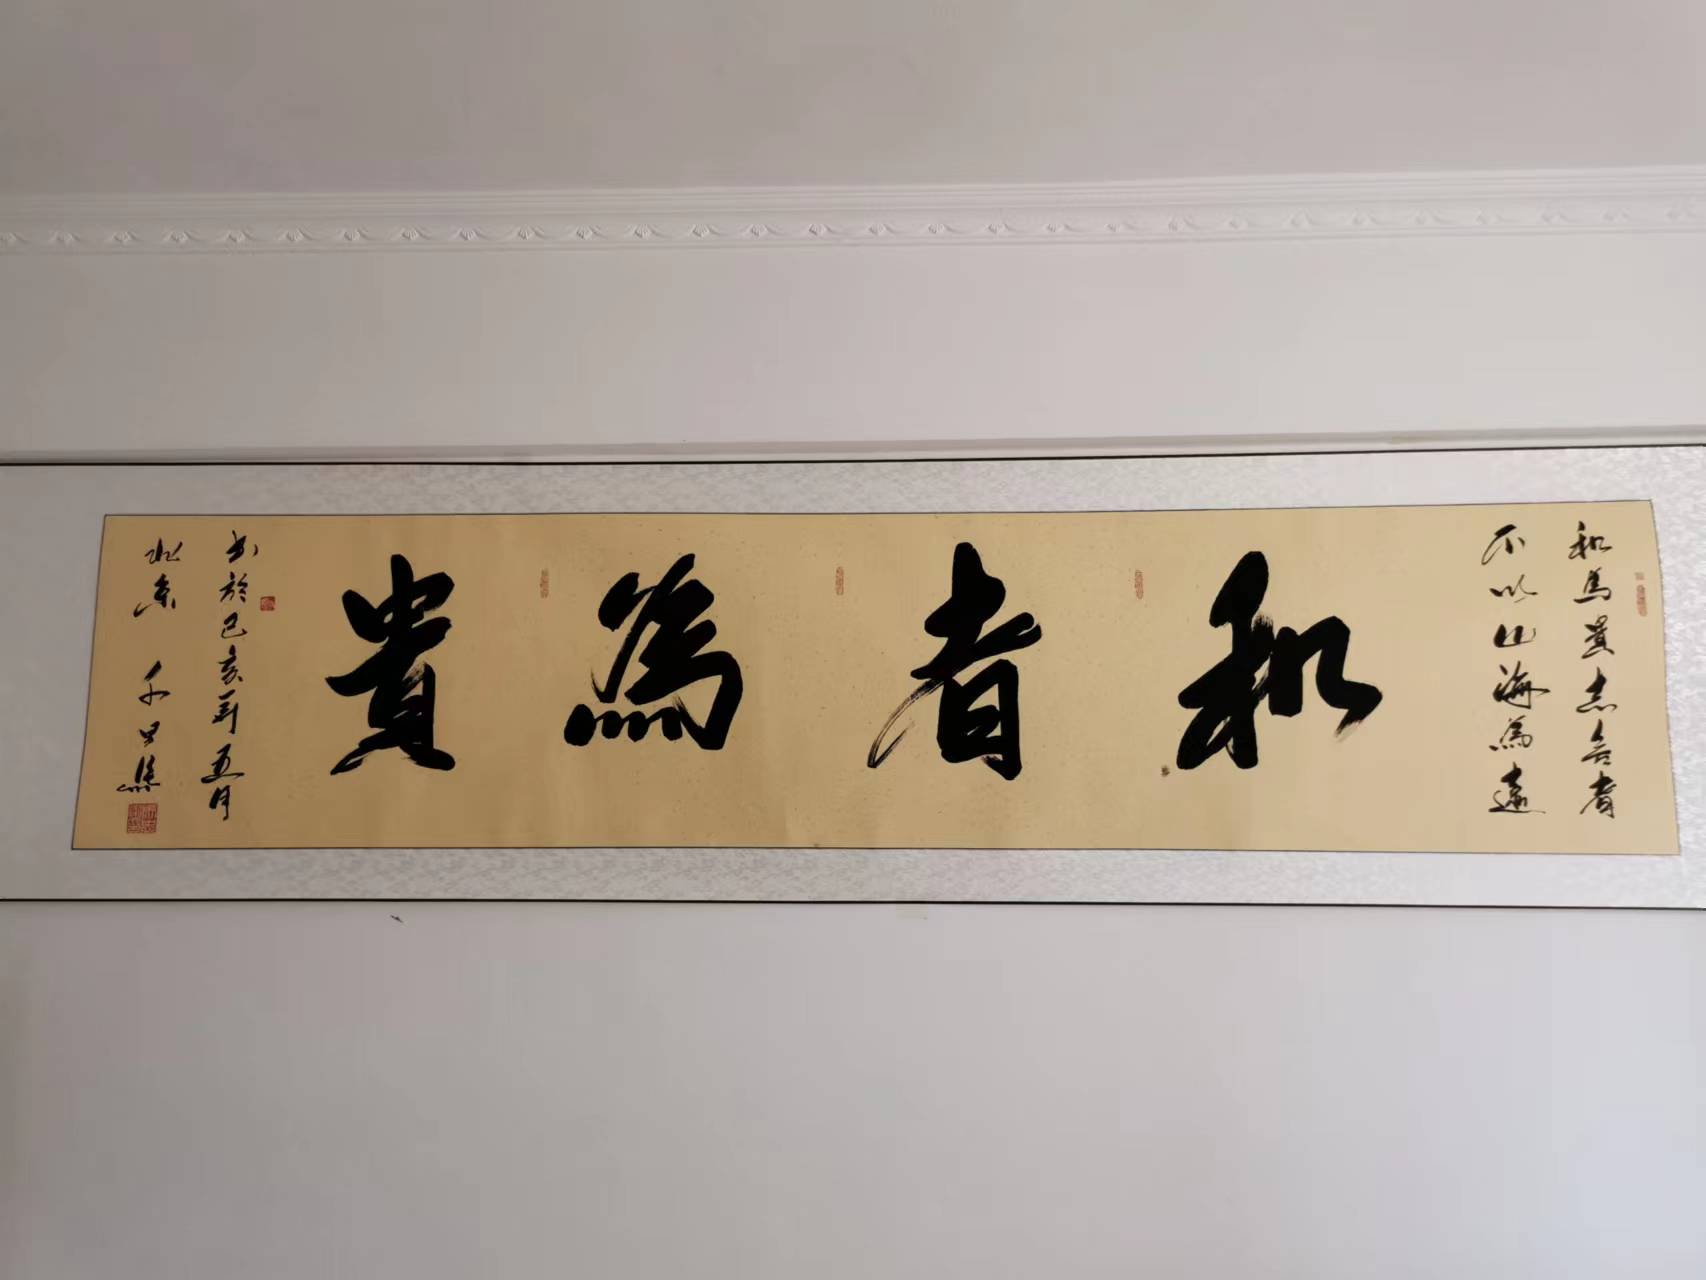 和為貴志合者
不以山海為遠
和者為貴
書於己亥年五月
北京 千里馬